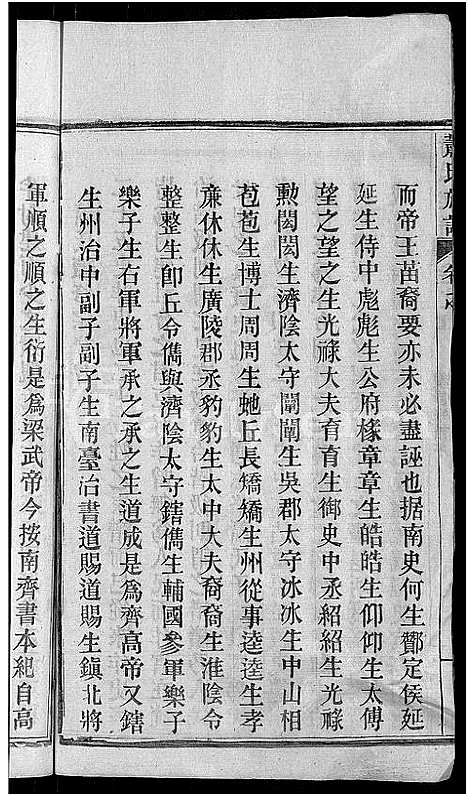 蕭氏族譜 卷之
而帝王苗裔要亦未必盡誣也据南史何生酇定侯延
延生侍中彪彪生公府椽章章生皓皓生仰仰生太傅
望之望之生光祿大夫育育生御史中丞紹紹生光祿
勲閎閎生濟陰太守闡闡生吳郡太守冰冰生中山相
苞苞生博士周周生虵丘長矯矯生州從事逵逵生孝
亷休休生廣陵郡丞豹豹生太中大夫裔裔生淮陰令
整整生卽丘令儁與濟陰太守鎋儁生輔國參軍樂子
樂子生右軍將軍承之承之生道成是爲齊高帝又鎋
生州治中副子副子生南臺治書道賜道賜生鎭北將
軍順之順之生衍是爲梁武帝今按南齊書本紀自高